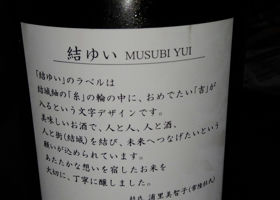 結ゆい MUSUBI YUI
「結ゆい」のラベルは
結城紬の「糸」の輪の中に、おめでたい「吉」が
入るという文字デザインです。
美味しいお酒で、人と人、人と酒、
人と街(結城)を結び、未来へつなげたいという
願いが込められています。
あたたかな想いを宿したお米を
大切に、丁寧に醸しました。
杜氏 浦里美智子(常陸杜氏)